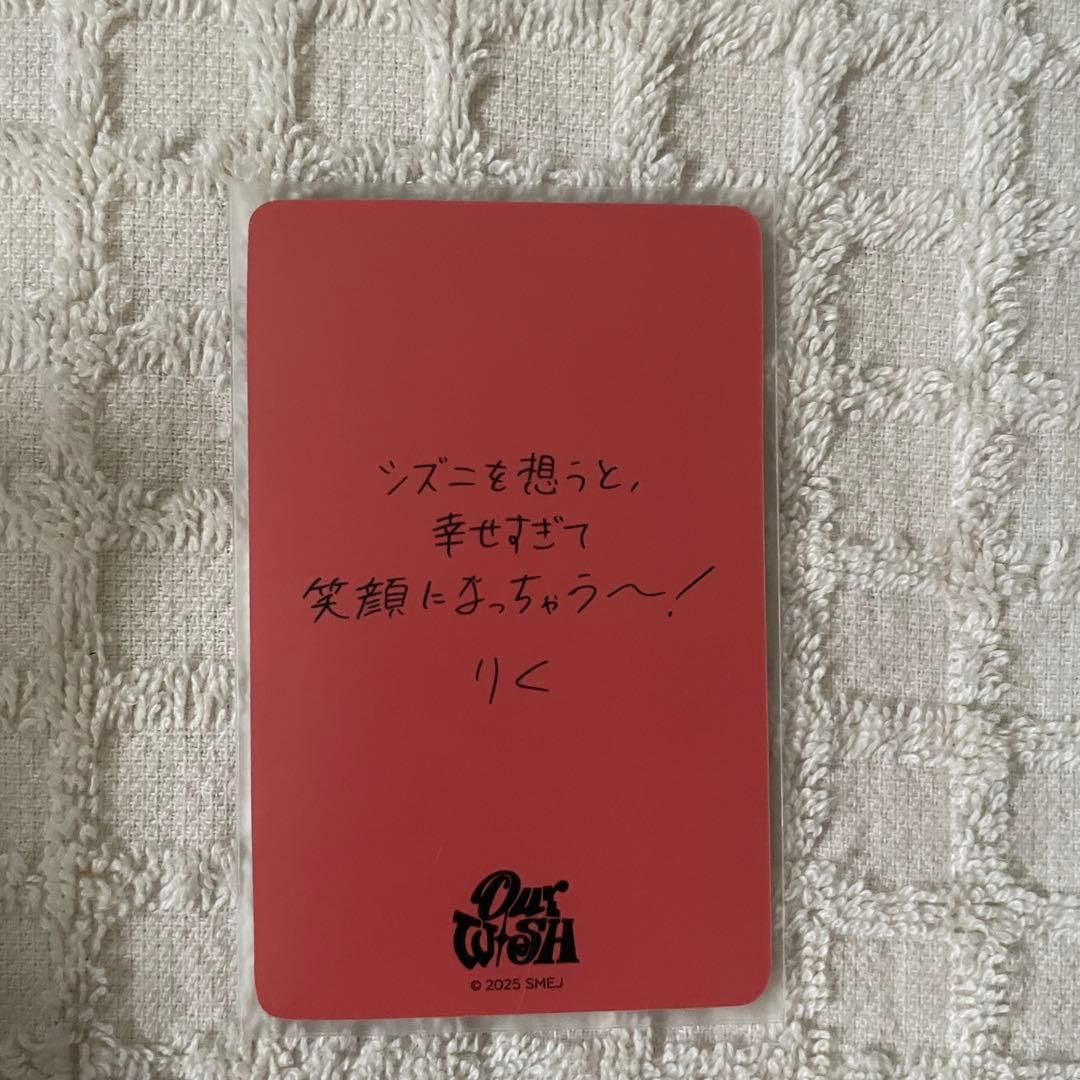 シズニを想うと,
幸せすぎて
笑顔になっちゃう〜!
りく
Our
WiSH
© 2025 SMEJ